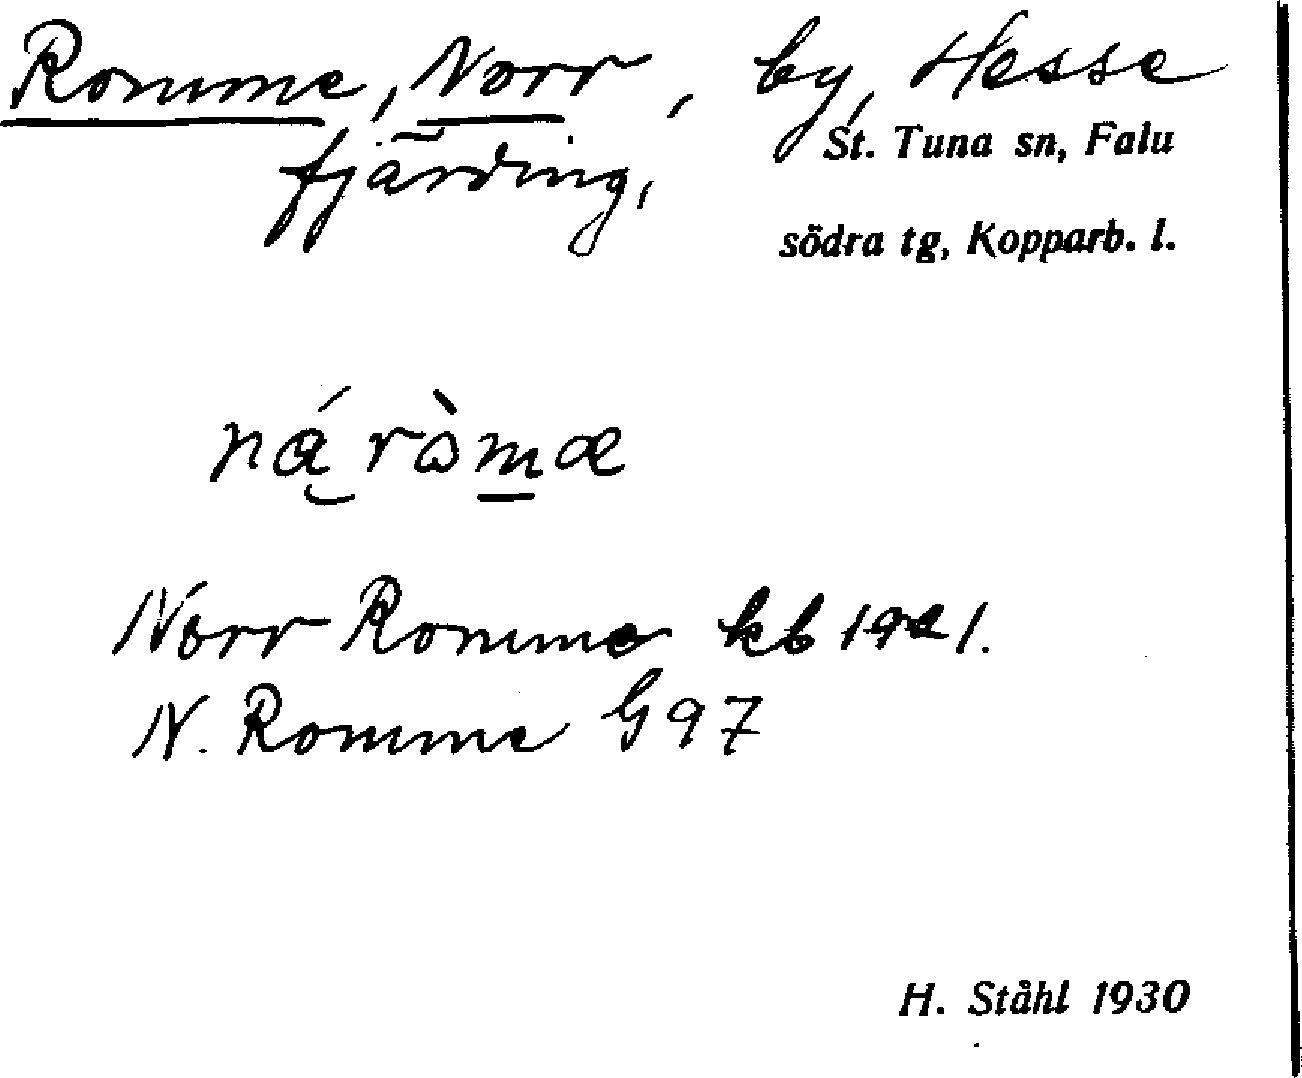 Romme, Norr, by, Hesse
fjärding, St. Tuna sn, Falu
södra tg, Kopparb. l.
Norr Romme kb 1921.
N. Romme G97
H. Ståhl 1930